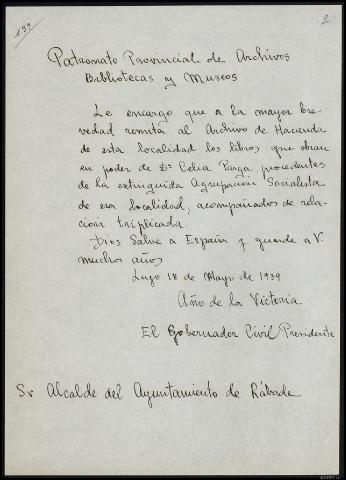 139
2
Patronato Provincial de Archivos
Bibliotecas y Museos
Le encargo que a la mayor bre-
vedad remita al Archivo de Hacienda
de esta localidad los libros que obran
en poder de Dª Celia Parga, procedentes
de la extinguida Agrupación Socialista
de esa localidad, acompañados de rela-
ción triplicada.
Dios Salve a España y guarde a V.
muchos años
Lugo 18 de Mayo de 1939
Año de la Victoria
El Gobernador Civil Presidente
Sr Alcalde del Ayuntamiento de Rábade